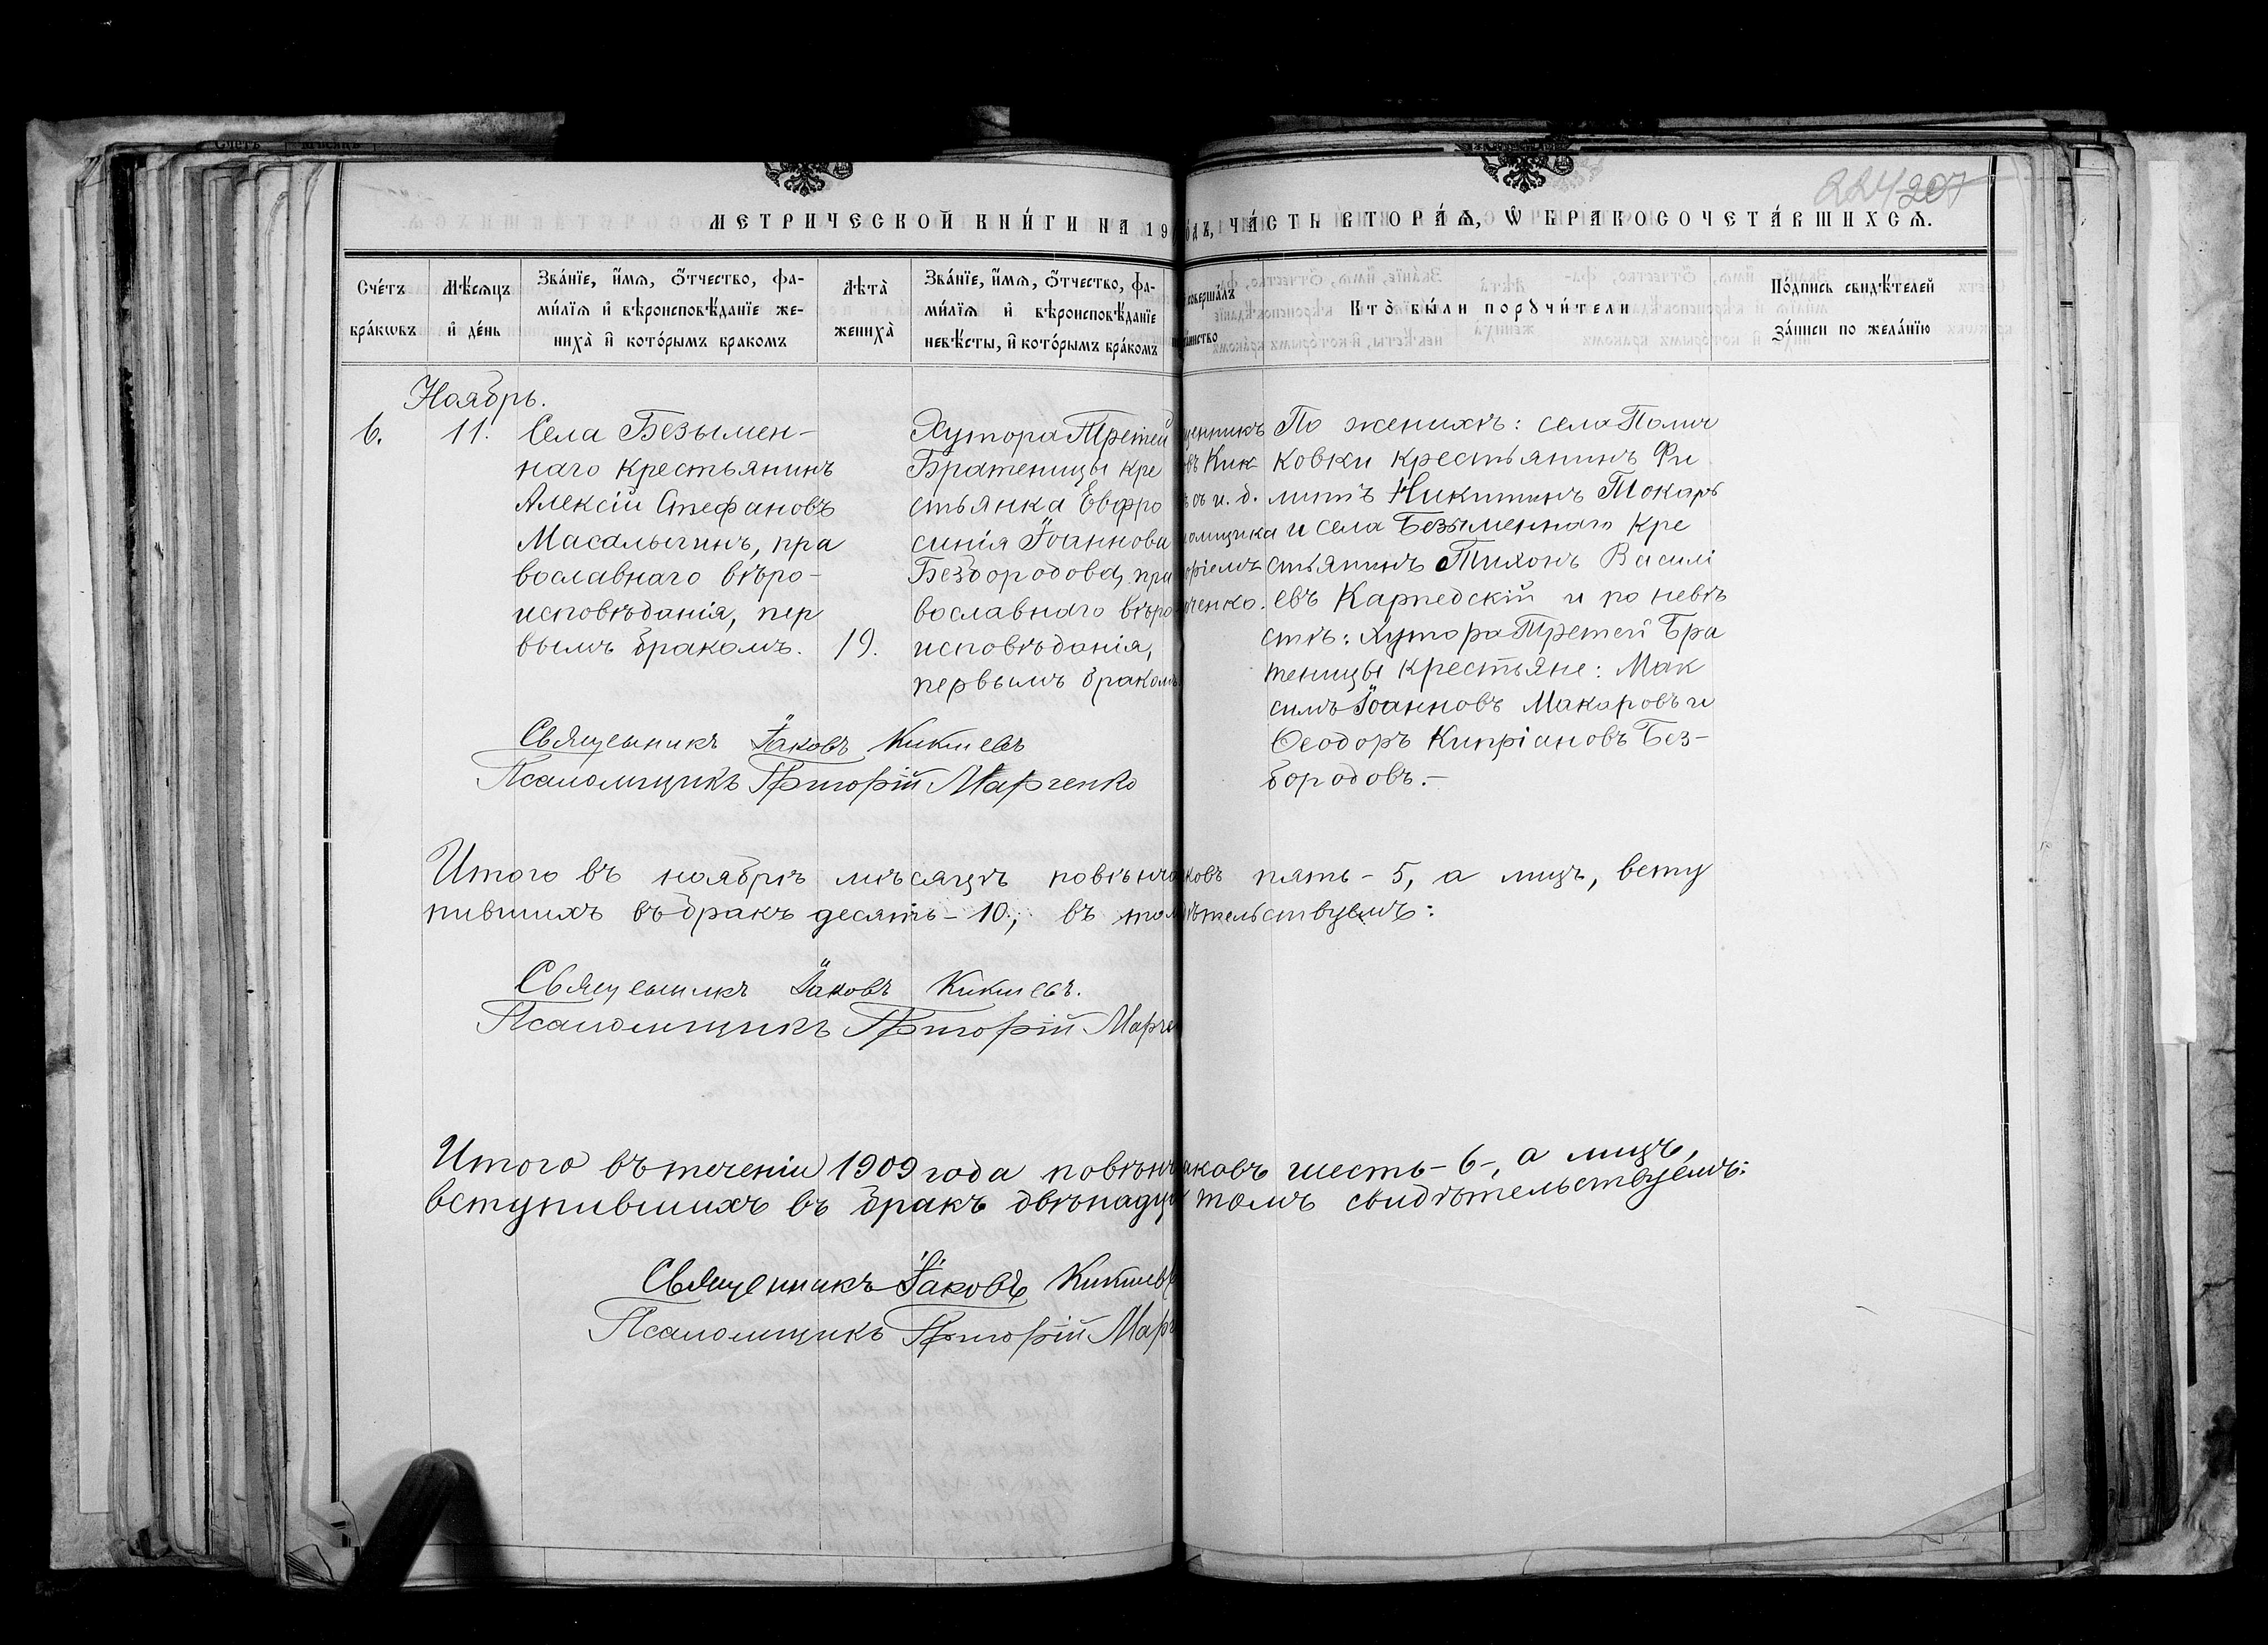 224 207
МЕТРИЧЕСКОЙ КНИ́ГИ НА 19
ЧА́СТЬ ВТОРА́Ѧ, Ѡ БРАКОСОЧЕТА́ВШИХСѦ.
Сче́тъ
бра́кѡвъ
Мѣ́сѧцъ
и҆ де́нь
Зва́нїе, и҆́мѧ, ѻ҆́тчество, фа-
ми́лїѧ и҆ вѣроисповѣ́данїе же-
ниха̀ и҆ кото́рымъ бракомъ
Лѣта̀
жениха̀
Зва́нїе, и҆́мѧ, ѻ҆́тчество, фа-
ми́лїѧ и҆ вѣроисповѣ́данїе
невѣ́сты, и҆ кото́рымъ бра́комъ
совершáлъ
Кто̀ бы́ли порꙋчи́тели
По́дпись свидѣ́телей
за́писи по жела́нїю
Ноябрь.
6. 11.
Села Безымен-
наго крестьянинъ
Алексій Стефановъ
Масалыгинъ, пра
вославнаго вѣро-
исповѣданія, пер
вымъ бракомъ.
19.
Хутора Третей
Братеницы кре
стьянка Евфро
синія Іоаннова
Безбородова, пра
вославнаго вѣро
исповѣданія,
первымъ бракомъ
щенникъ
въ Кик
съ и. д.
омщика
оріемъ
ченко.
По женихѣ: села Поли
ковки крестьянинъ Фи
липъ Никитинъ Токарь
и села Безыменнаго кре
стьянинъ Тихонъ Василі
евъ Карпедскій и по невѣ
стѣ: хутора Третей Бра
теницы крестьяне: Мак
симъ Іоанновъ Макаровъ и
Ѳеодоръ Кипріановъ Без-
бородовъ.-
Священникъ Іаковъ Кикшевъ
Псаломщикъ Григорій Марченко
Итого въ ноябрѣ мѣсяцѣ повѣнча ковъ пять - 5, а лицъ, всту
пившихъ въ бракъ десять - 10.; въ томъ ѣтельствуемъ:
Священникъ Іаковъ Кикшевъ.
Псаломщикъ Григорій Марчен
Итого въ теченіи 1909 года повѣнч аковъ шесть - 6 -, а лицъ,
вступившихъ въ бракъ двѣнадца томъ свидѣтельствуемъ:
Священникъ Іаковъ Кикшевъ
Псаломщикъ Григорій Марч